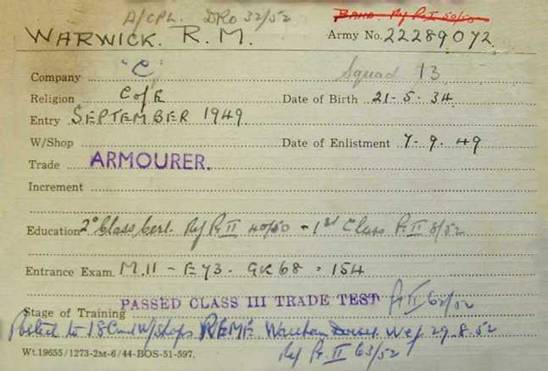 A/CPL. DRO 32/52
BAND. Ref Pt I 50/50
WARWICK. R. M. Army No. 22289072
Company "C" Squad 13
Religion C of E Date of Birth 21-5-34
Entry SEPTEMBER 1949
W/Shop Date of Enlistment 7-9-49
Trade ARMOURER.
Increment
Education 2° Class Cert. Ref Pt II 40/50 - 1st Class Pt II 8/52
Entrance Exam. M.11 - E73. GK 68 . 154
PASSED CLASS III TRADE TEST Pt II 62/52
Stage of Training
Posted to 18 Cmd W/Shops REME Wareham Dorset wef 29.8.52
Wt.19655/1273-2M-6/44-BOS-51-597. Ref Pt II 63/52